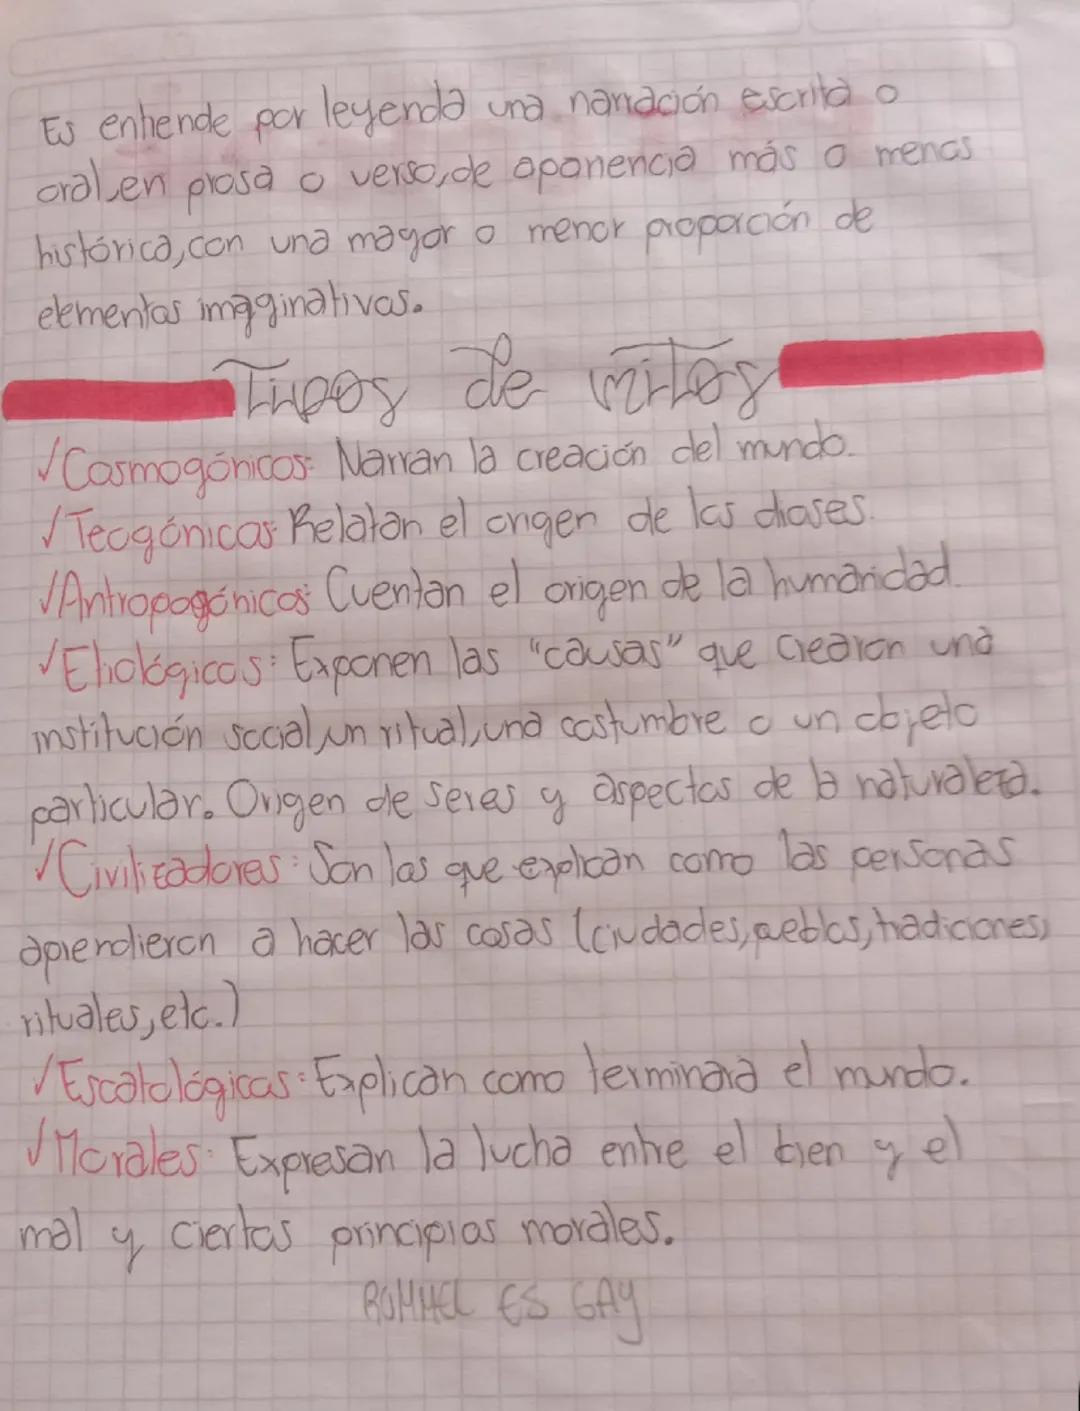 Es entiende por leyenda una narración escrita o
oral,en prosa o verso,de aparencia más o menos
histórica,con una mayor o menor proporción de
elementos imaginativos.
Tipos de mitos
✓Cosmogónicos: Narran la creación del mundo.
✓Teogónicos: Relatan el origen de los dioses.
✓Antropogónicos: Cuentan el origen de la humanidad.
✓Etiológicos: Exponen las "causas" que crearon una
institución social,un ritual,una costumbre o un objeto
particular. Origen de seres y aspectos de la naturaleza.
✓Civilizadores: Son los que explican como las personas
aprendieron a hacer las cosas (ciudades,peblos,tradiciones,
rituales,etc.)
✓Escatológicas: Explican como terminara el mundo.
✓Morales: Expresan la lucha entre el bien y el
mal y ciertos principios morales.
ROMMEL ES GAY